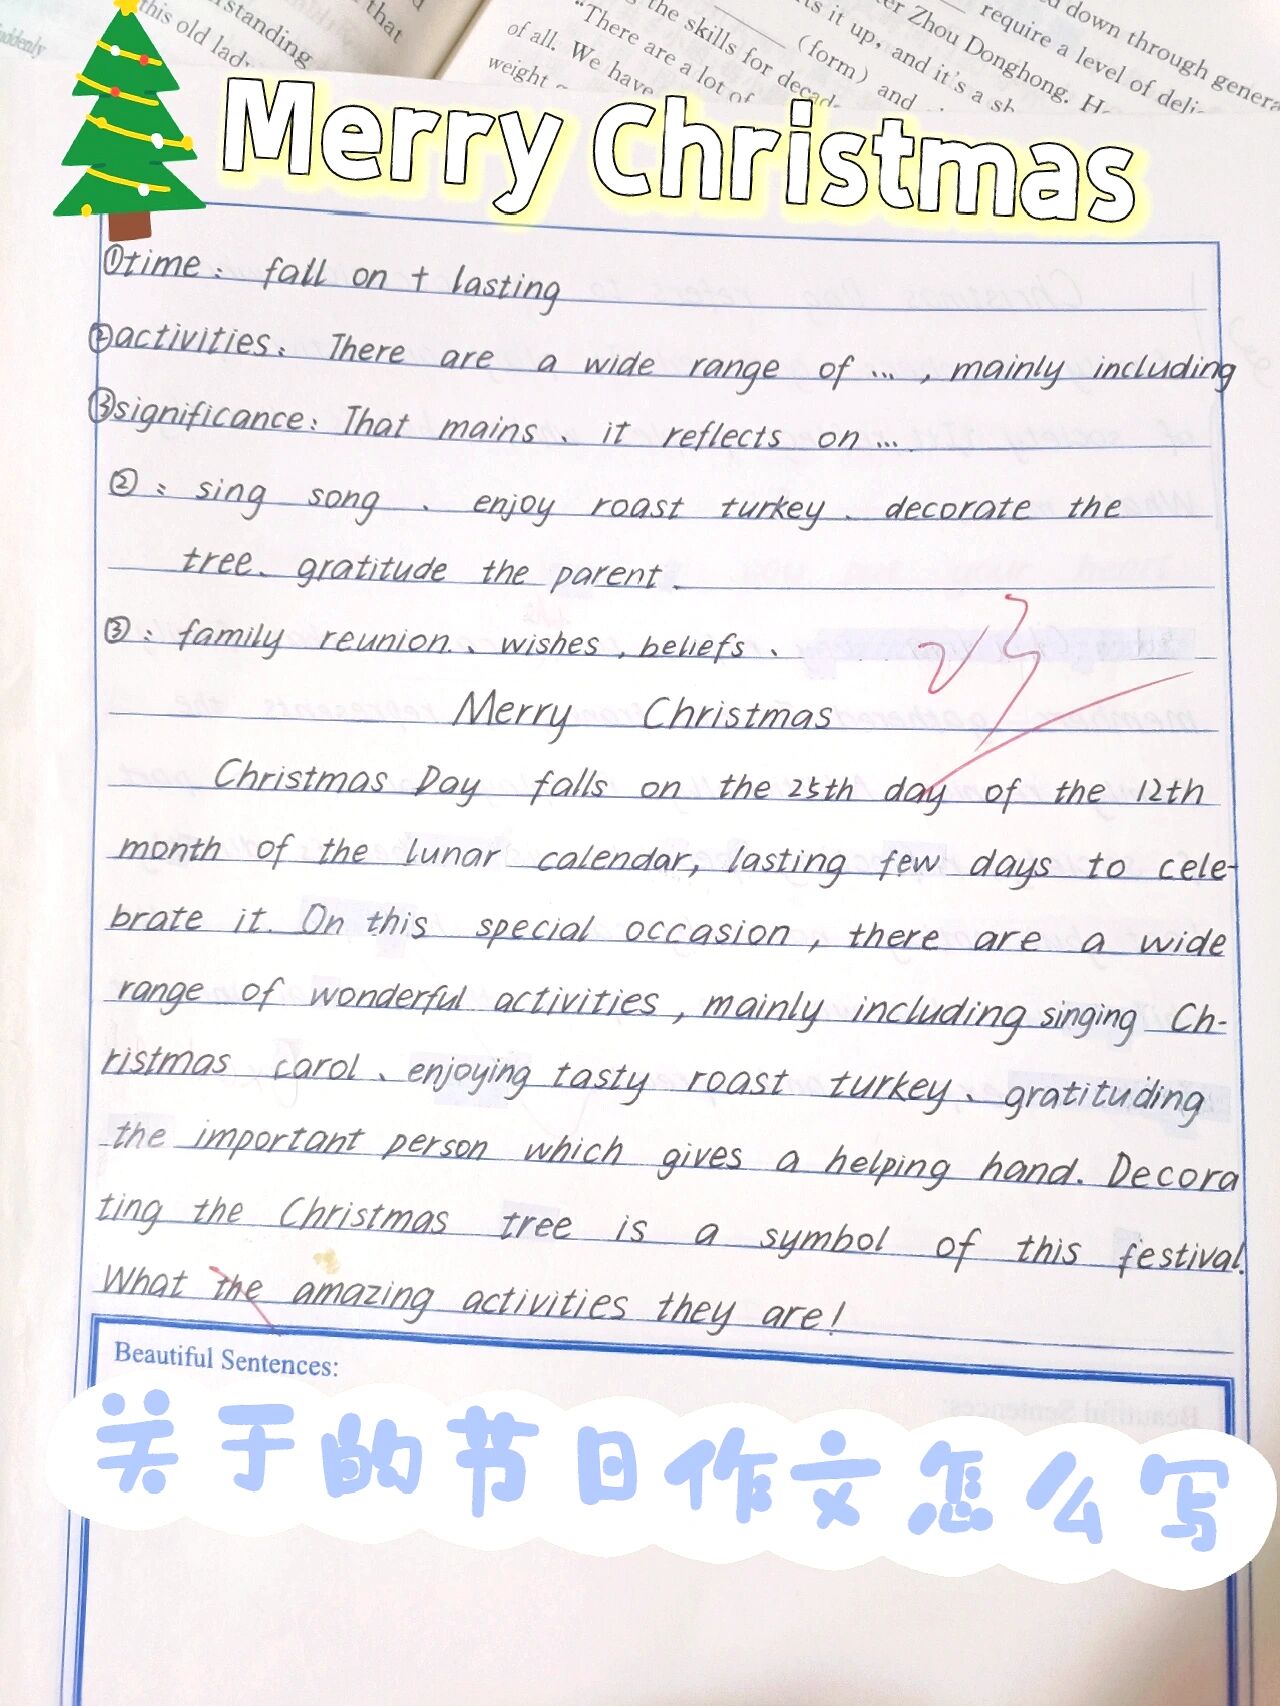 Suddenly
this old lady
rstanding
that
"There are a lot of
of all. We have
weight
the skills for decad
(form) and
ts it up, and it's a sh
er Zhou Donghong. He
require a level of deli
d down through genera
Merry Christmas
①time: fall on + lasting
②activities: There are a wide range of ..., mainly including
③significance: That mains、it reflects on ...
②: sing song 、enjoy roast turkey、decorate the
tree、gratitude the parent.
③: family reunion、wishes, beliefs、
23
Merry Christmas
Christmas Day falls on the 25th day of the 12th
month of the lunar calendar, lasting few days to cele-
brate it. On this special occasion, there are a wide
range of wonderful activities, mainly including singing Ch-
ristmas carol、enjoying tasty roast turkey、gratituding
the important person which gives a helping hand. Decora
ting the Christmas tree is a symbol of this festival.
What the amazing activities they are!
Beautiful Sentences:
关于的节日作文怎么写